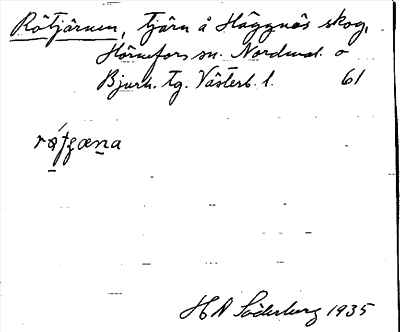 Rötjärnen, tjärn å Häggnäs skog,
Hörnefors sn. Nordmal. o
Bjurh. tg. Västerb. l. 61
H A Söderberg 1935